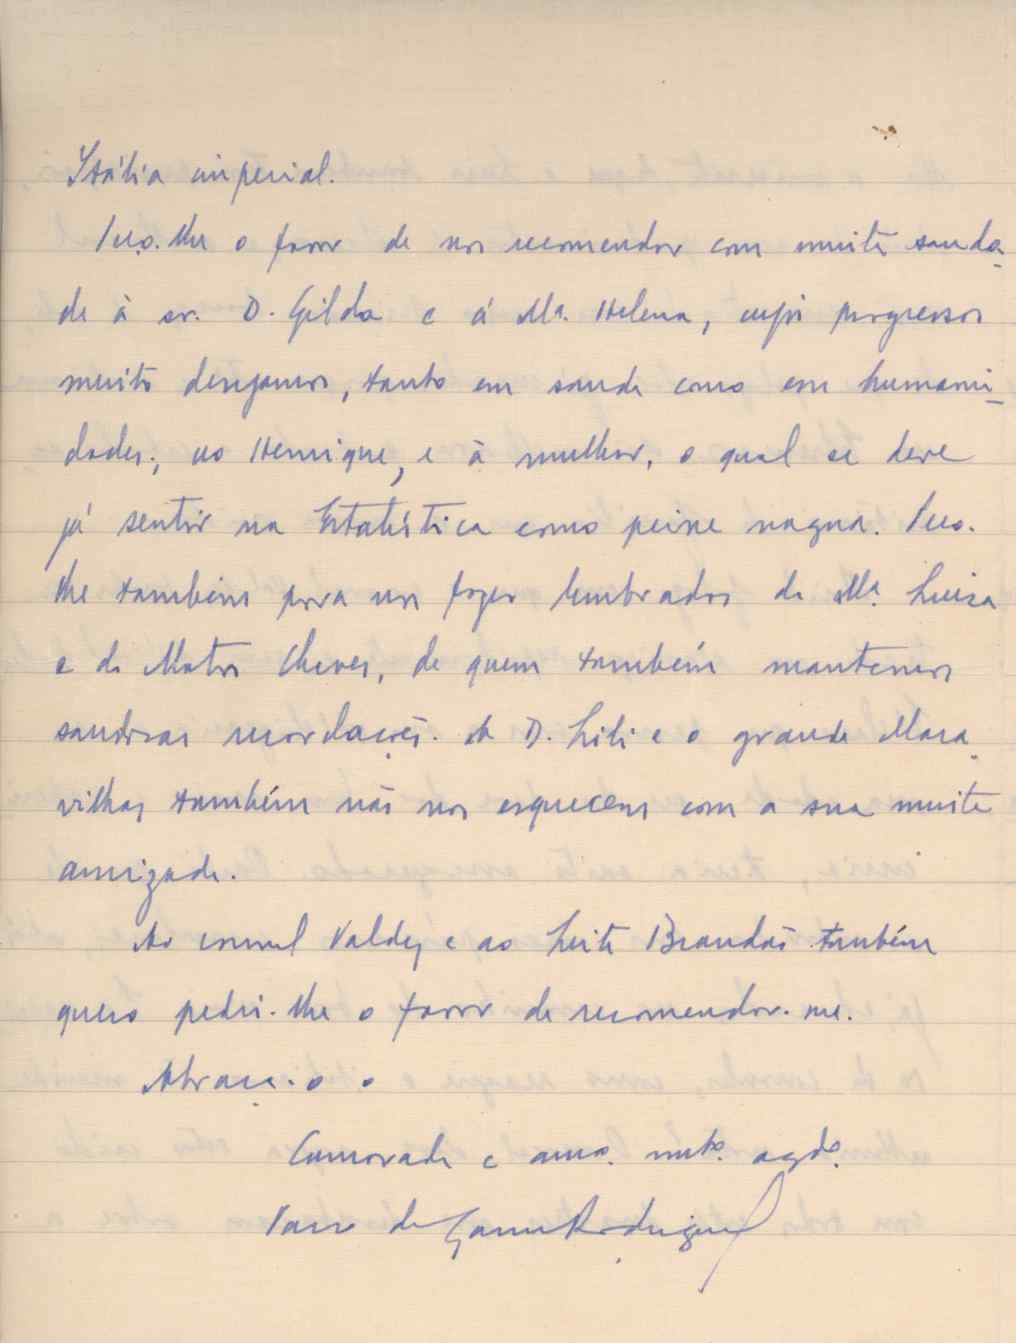 Itália imperial.
Peço-lhe o favor de nos recomendar com muita sauda-
de à sr. D. Gilda e á Mª. Helena, cujos progressos
muito desejamos, tanto em saude como em humani-
dades; ao Henrique, e à mulher, o qual se deve
já sentir na Estatística como peixe nagua. Peço-
lhe também para nos fazer lembrados de Mª. Luiza
e de Matos Chaves, de quem também mantemos
saudosas recordações. A D. Lili e o grande Mara-
vilhas também não nos esquecem com a sua muita
amizade.
Ao consul Valdez e ao Leite Brandão também
quero pedir-lhe o favor de recomendar-me.
Abraça-o o
Camarada e amº. mtº. agdº.
Vasco da Gama Rodrigues